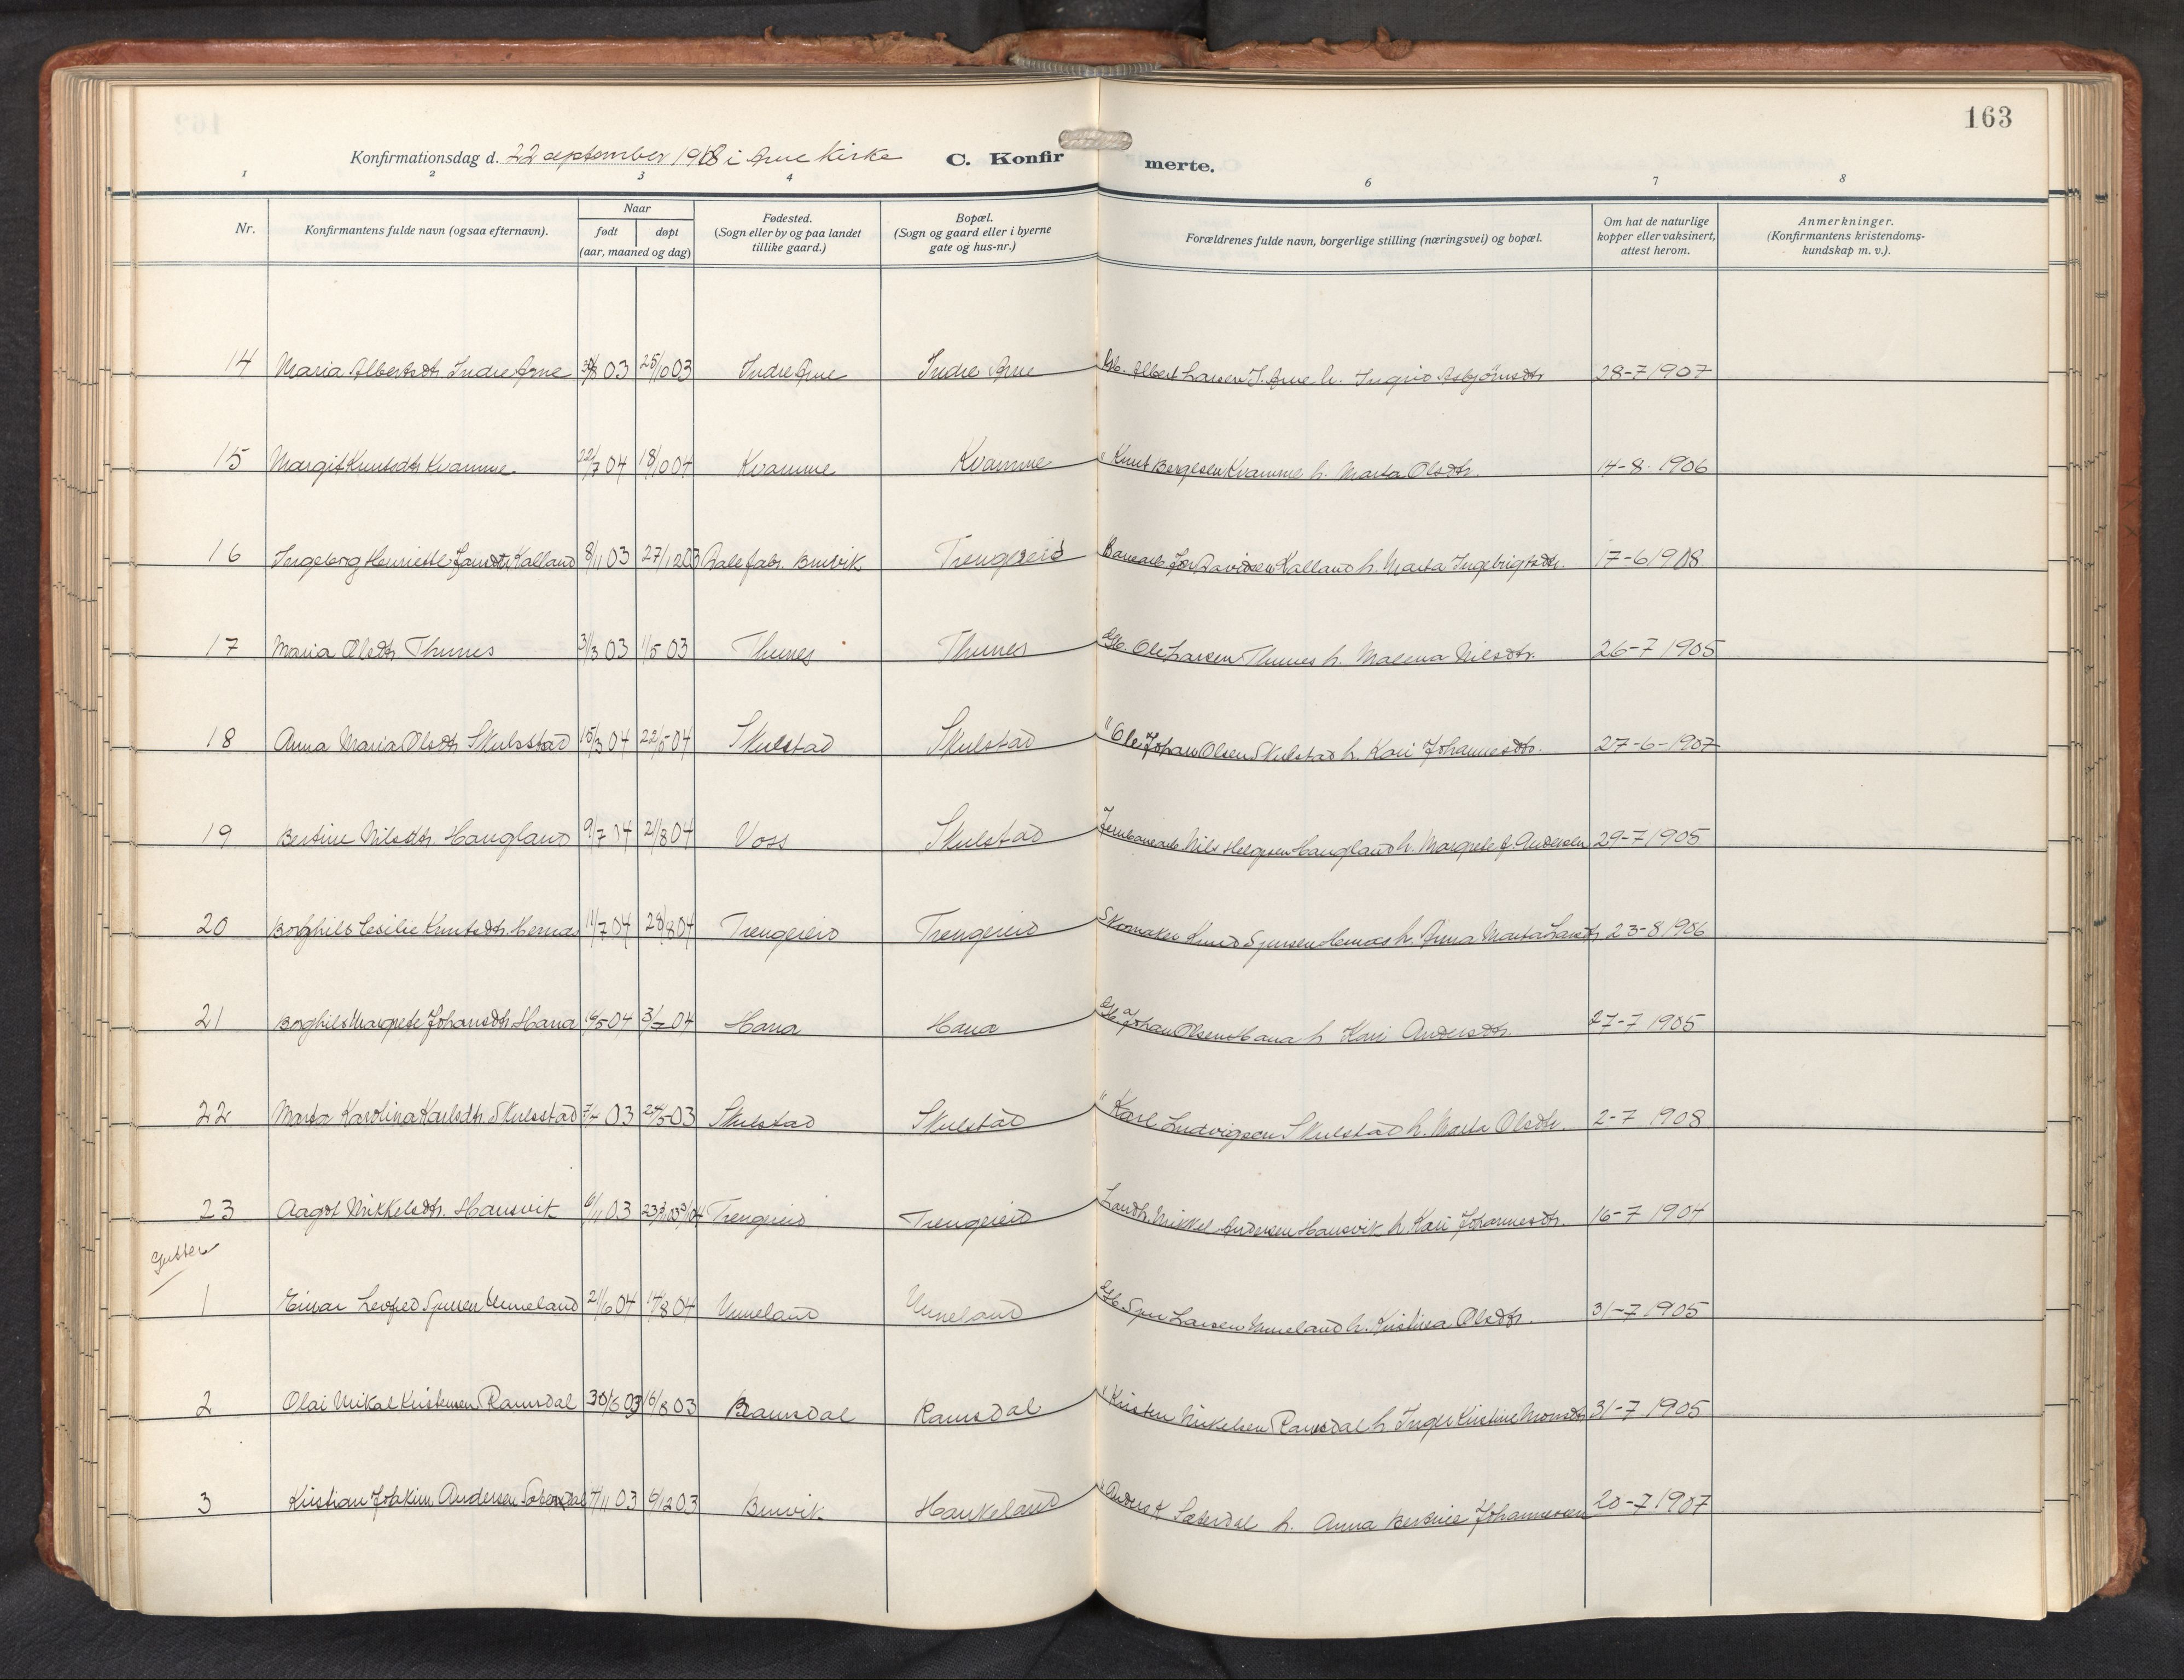 163
Konfirmationsdag d. 22 september 1918 i Arne Kirke C. Konfirmerte.
1 2 3 4 6 7 8
Nr. Konfirmantens fulde navn (ogsaa efternavn). Naar født døpt (aar, maaned og dag) Fødested. (Sogn eller by og paa landet tillike gaard.) Bopæl. (Sogn og gaard eller i byerne gate og hus-nr.) Forældrenes fulde navn, borgerlige stilling (næringsvei) og bopæl. Om hat de naturlige kopper eller vaksinert, attest herom. Anmerkninger. (Konfirmantens kristendomskundskap m. v.).
14 Maria Albertsdtr Indre Arne 03 25/10 03 Indre Arne Indre Arne Gb. Albert Larsen I. Arne h. Ingrid Asbjørnsdtr 28-7 1907
15 Margit Knutsdtr Kvamme 22/7 04 18/10 04 Kvamme Kvamme " Knut Børgesen Kvamme h. Marta Olsdtr. 14-8-1906
16 Ingeborg Henriette Kalland 8/11 03 27/12 03 Dale fabr. Bruvik Trengereid Banearb. Davidsen Kalland h. Marta Ingebrigtsdtr. 17-6 1908
17 Maria Olsdtr Thunes 31/3 03 1/5 03 Thunes Thunes Gb. Ole Larsen Thunes h. Malena Nilsdtr. 26-7 1905
18 Anna Maria Olsdtr Skulstad 15/3 04 22/5 04 Skulstad Skulstad " Ole Johan Olsen Skulstad h. Kari Johannesdtr. 27-6-1907
19 Bertine Nilsdtr. Haugland 9/7 04 21/8 04 Voss Skulstad Jernbanearb. Nils Helgesen Haugland h. Margrete f. Andersen 29-7 1905
20 Borghild Cesilie Knutsdtr. Hernas 11/7 04 28/8 04 Trengereid Trengereid Skomaker Knud Sjursen Hernas h. Anna Marta Larsdtr 23-8 1906
21 Borghild Margrete Johansdtr Hana 04 04 Hana Hana Gb. Johan Olsen Hana h Kari Andersdtr. 27-7 1905
22 Marta Karolina Karlsdtr. Skulstad 03 24/5 03 Skulstad Skulstad " Karl Ludvigsen Skulstad h. Marta Olsdtr. 2-7 1908
23 Aagot Mikkelsdtr. Hansvik 6/11 03 Trengereid Trengereid Landh. Mikkel Andersen Hansvik h. Kari Johannesdtr. 16-7 1904
Gutter
1 Einar Leofred Sjursen Unneland 21/6 04 14/8 04 Unneland Unneland Gb Sjur Larsen Unneland h. Kristina Olsdtr. 31-7 1905
2 Olai Mikal Kristensen Ramsdal 30/6 03 16/8 03 Ramsdal Ramsdal " Kristen Mikelsen Ramsdal h Inger Kristine Monsdtr 31-7 1905
3 Kristian Joakim Andersen Sæterdal 7/11 03 6/12 03 Bruvik Haukeland " Anders K Sæterdal h. Anna Bertine Johannesen 20-7 1907